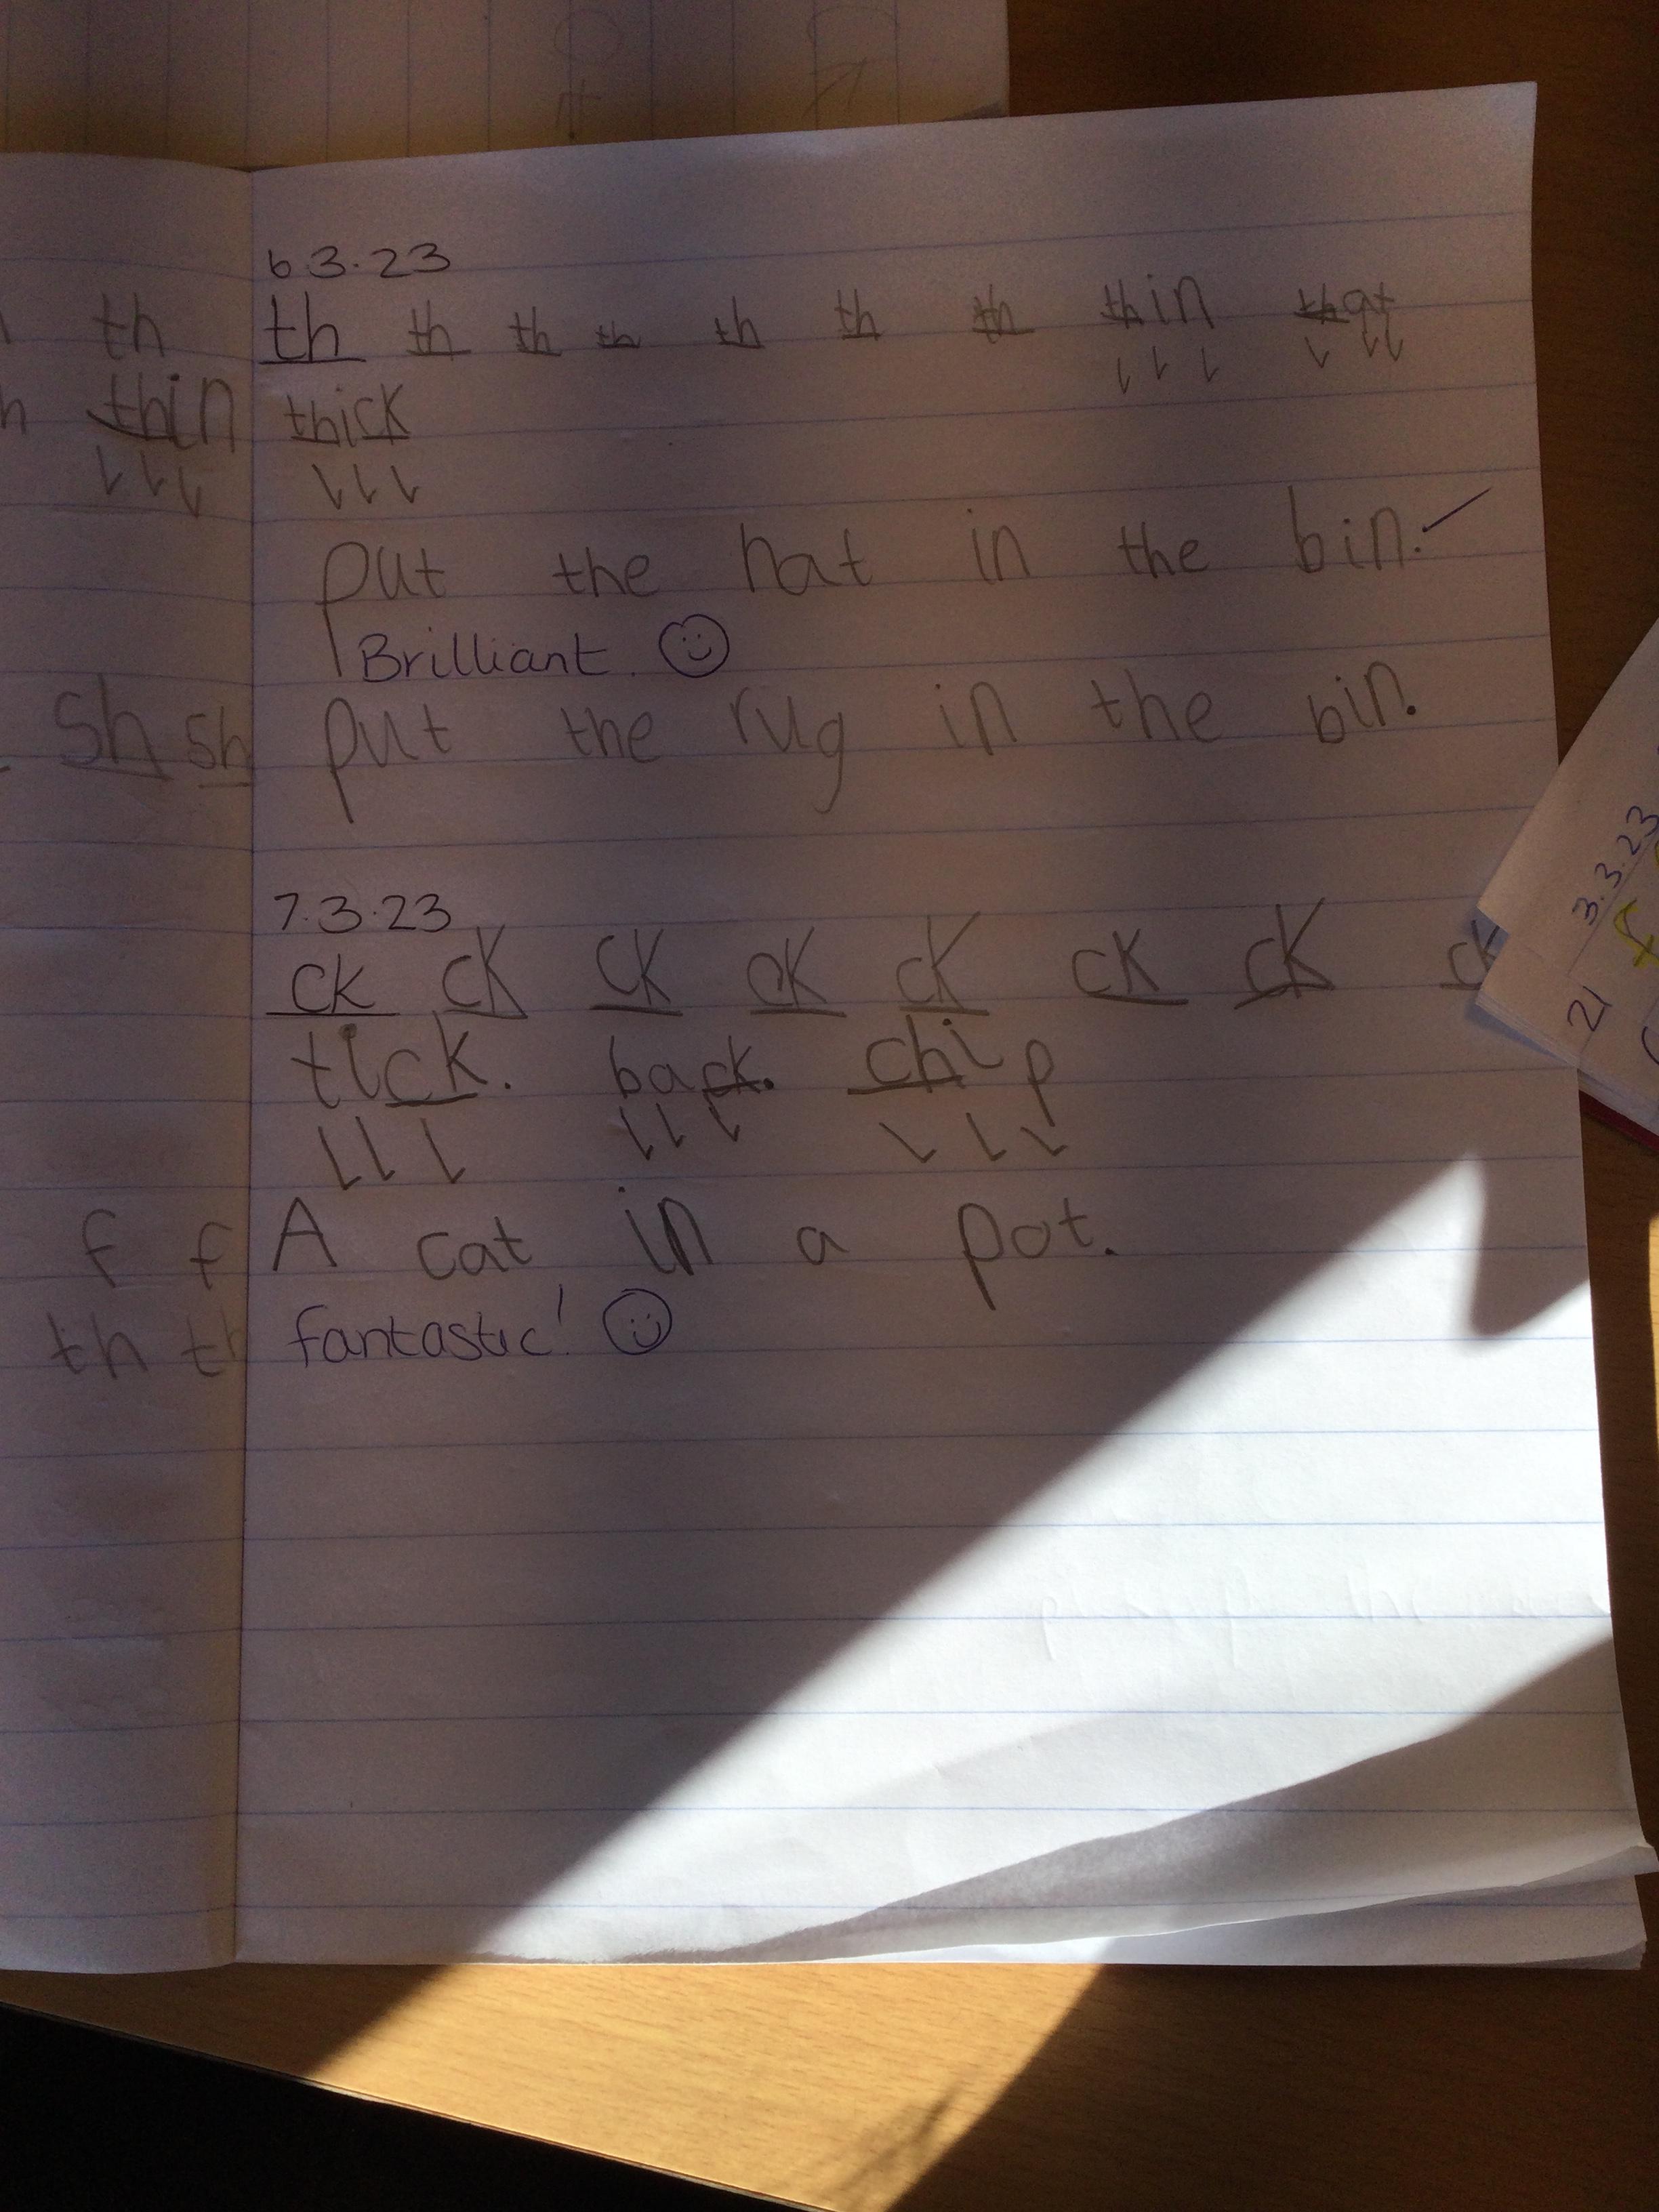 6.3.23
th th th th th th th thin that
thick
put the hat in the bin.
Brilliant.
put the rug in the bin.
7.3.23
ck ck ck ck ck ck ck ck
tick. back. chip
A cat in a pot.
fantastic!
th
thin
sh sh
f f
th th
3.3.23
21